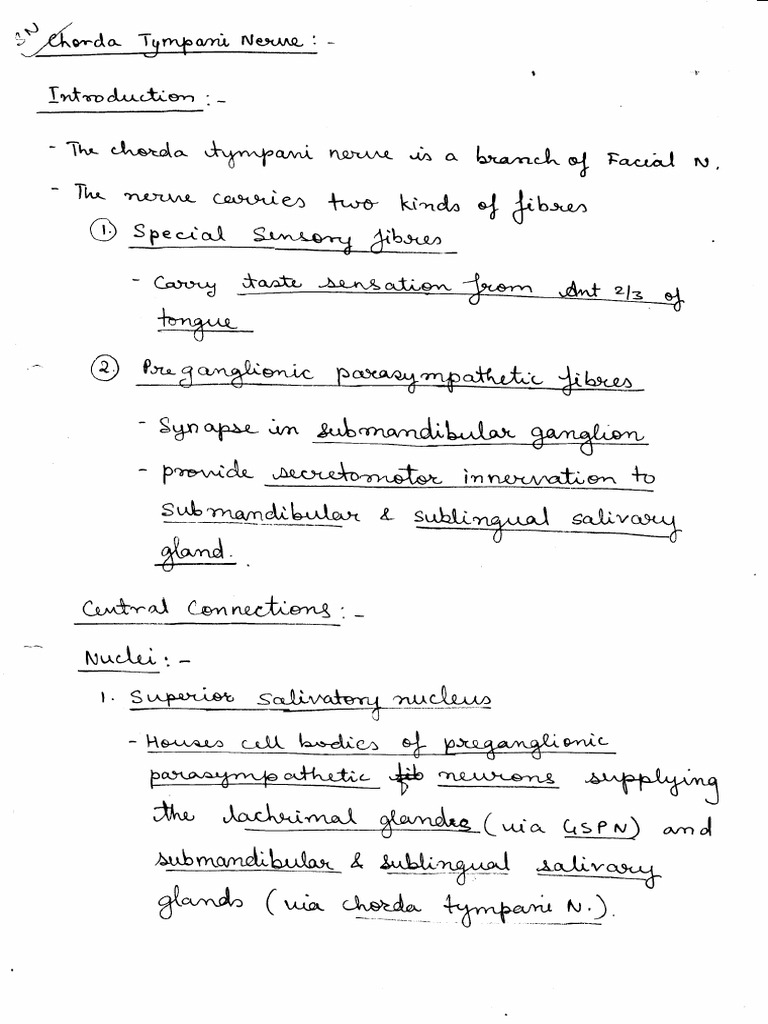 SN Chorda Tympani Nerve :-
Introduction :-
- The chorda tympani nerve is a branch of Facial N.
- The nerve carries two kinds of fibres
① Special Sensory fibres
- Carry taste sensation from Ant 2/3 of
tongue
② Preganglionic parasympathetic fibres
- Synapse in submandibular ganglion
- provide secretomotor innervation to
submandibular & sublingual salivary
gland.
Central Connections :-
Nuclei :-
1. Superior salivatory nucleus
- Houses cell bodies of preganglionic
parasympathetic fib neurons supplying
the lachrimal glands (via GSPN) and
submandibular & sublingual salivary
glands (via chorda tympani N.).